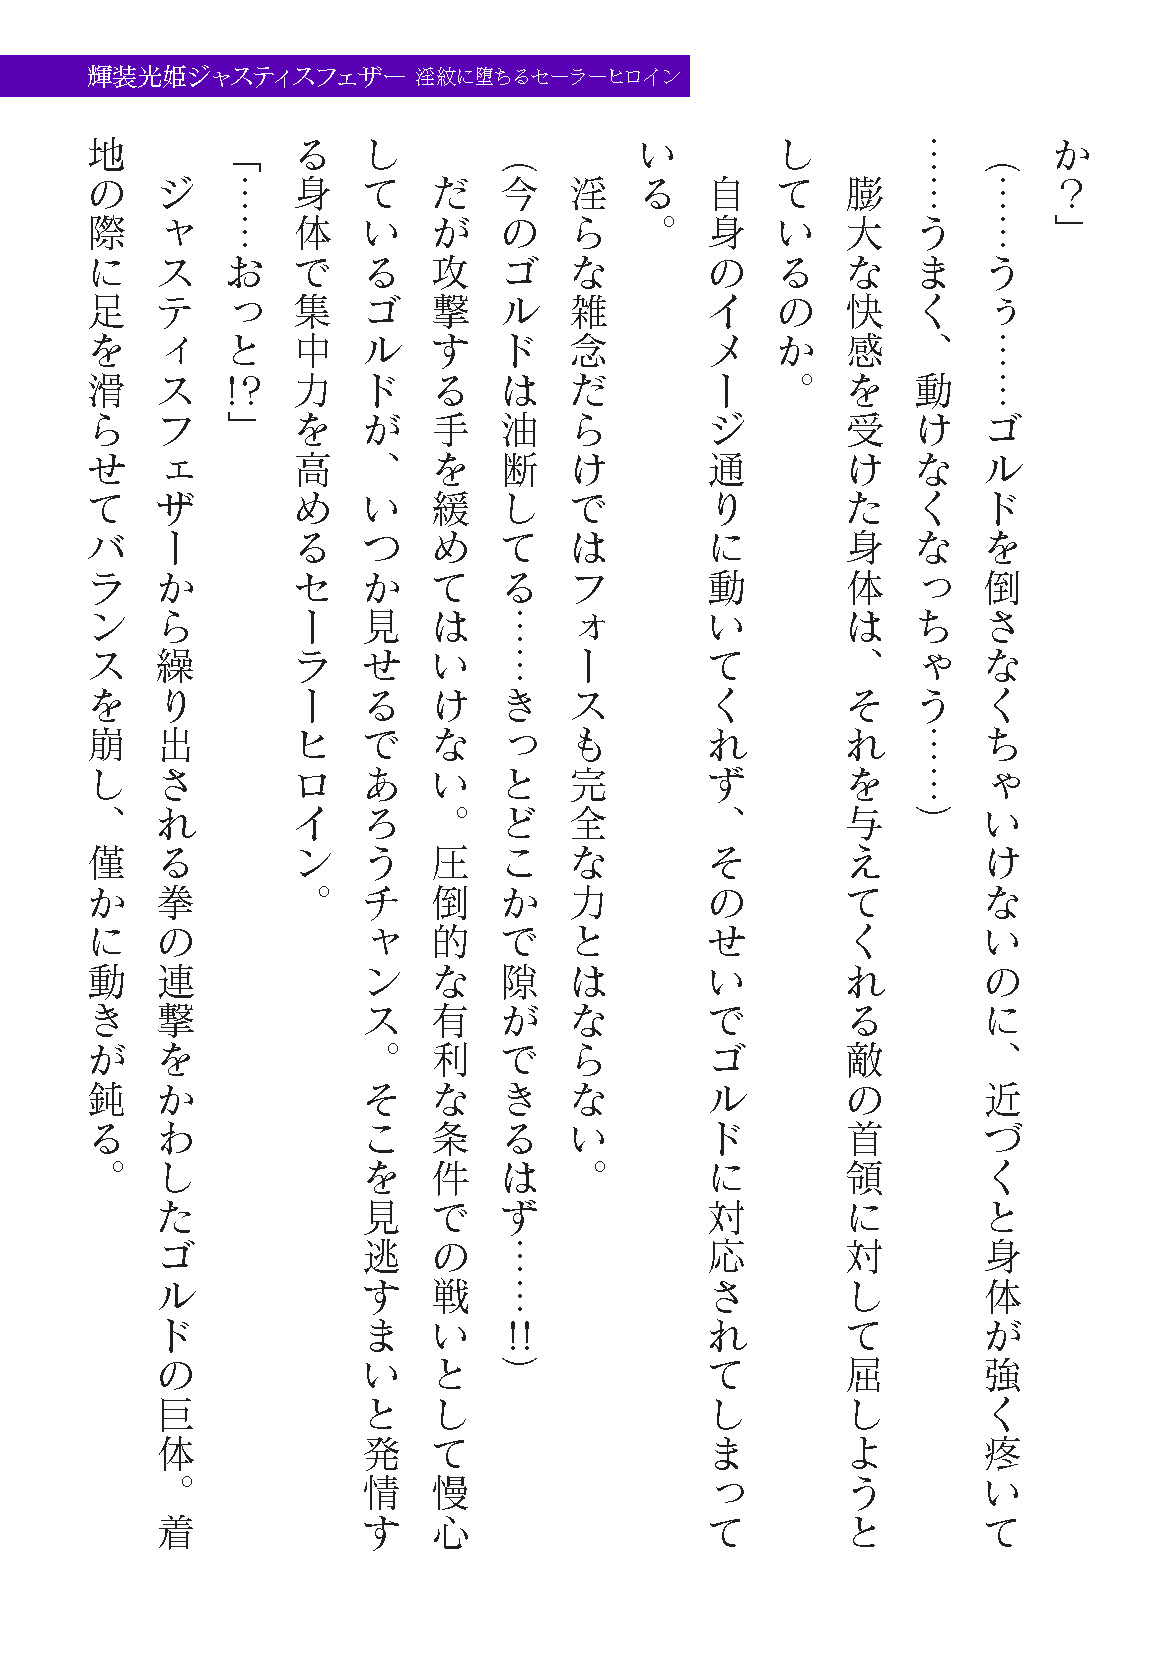 輝装光姫ジャスティスフェザー 淫紋に堕ちるセーラーヒロイン
か？」
（……うぅ……ゴルドを倒さなくちゃいけないのに、近づくと身体が強く疼いて
……うまく、動けなくなっちゃう……）
　膨大な快感を受けた身体は、それを与えてくれる敵の首領に対して屈しようと
しているのか。
　自身のイメージ通りに動いてくれず、そのせいでゴルドに対応されてしまって
いる。
　淫らな雑念だらけではフォースも完全な力とはならない。
（今のゴルドは油断してる……きっとどこかで隙ができるはず……!!）
　だが攻撃する手を緩めてはいけない。圧倒的な有利な条件での戦いとして慢心
しているゴルドが、いつか見せるであろうチャンス。そこを見逃すまいと発情す
る身体で集中力を高めるセーラーヒロイン。
「……おっと!?」
　ジャスティスフェザーから繰り出される拳の連撃をかわしたゴルドの巨体。着
地の際に足を滑らせてバランスを崩し、僅かに動きが鈍る。